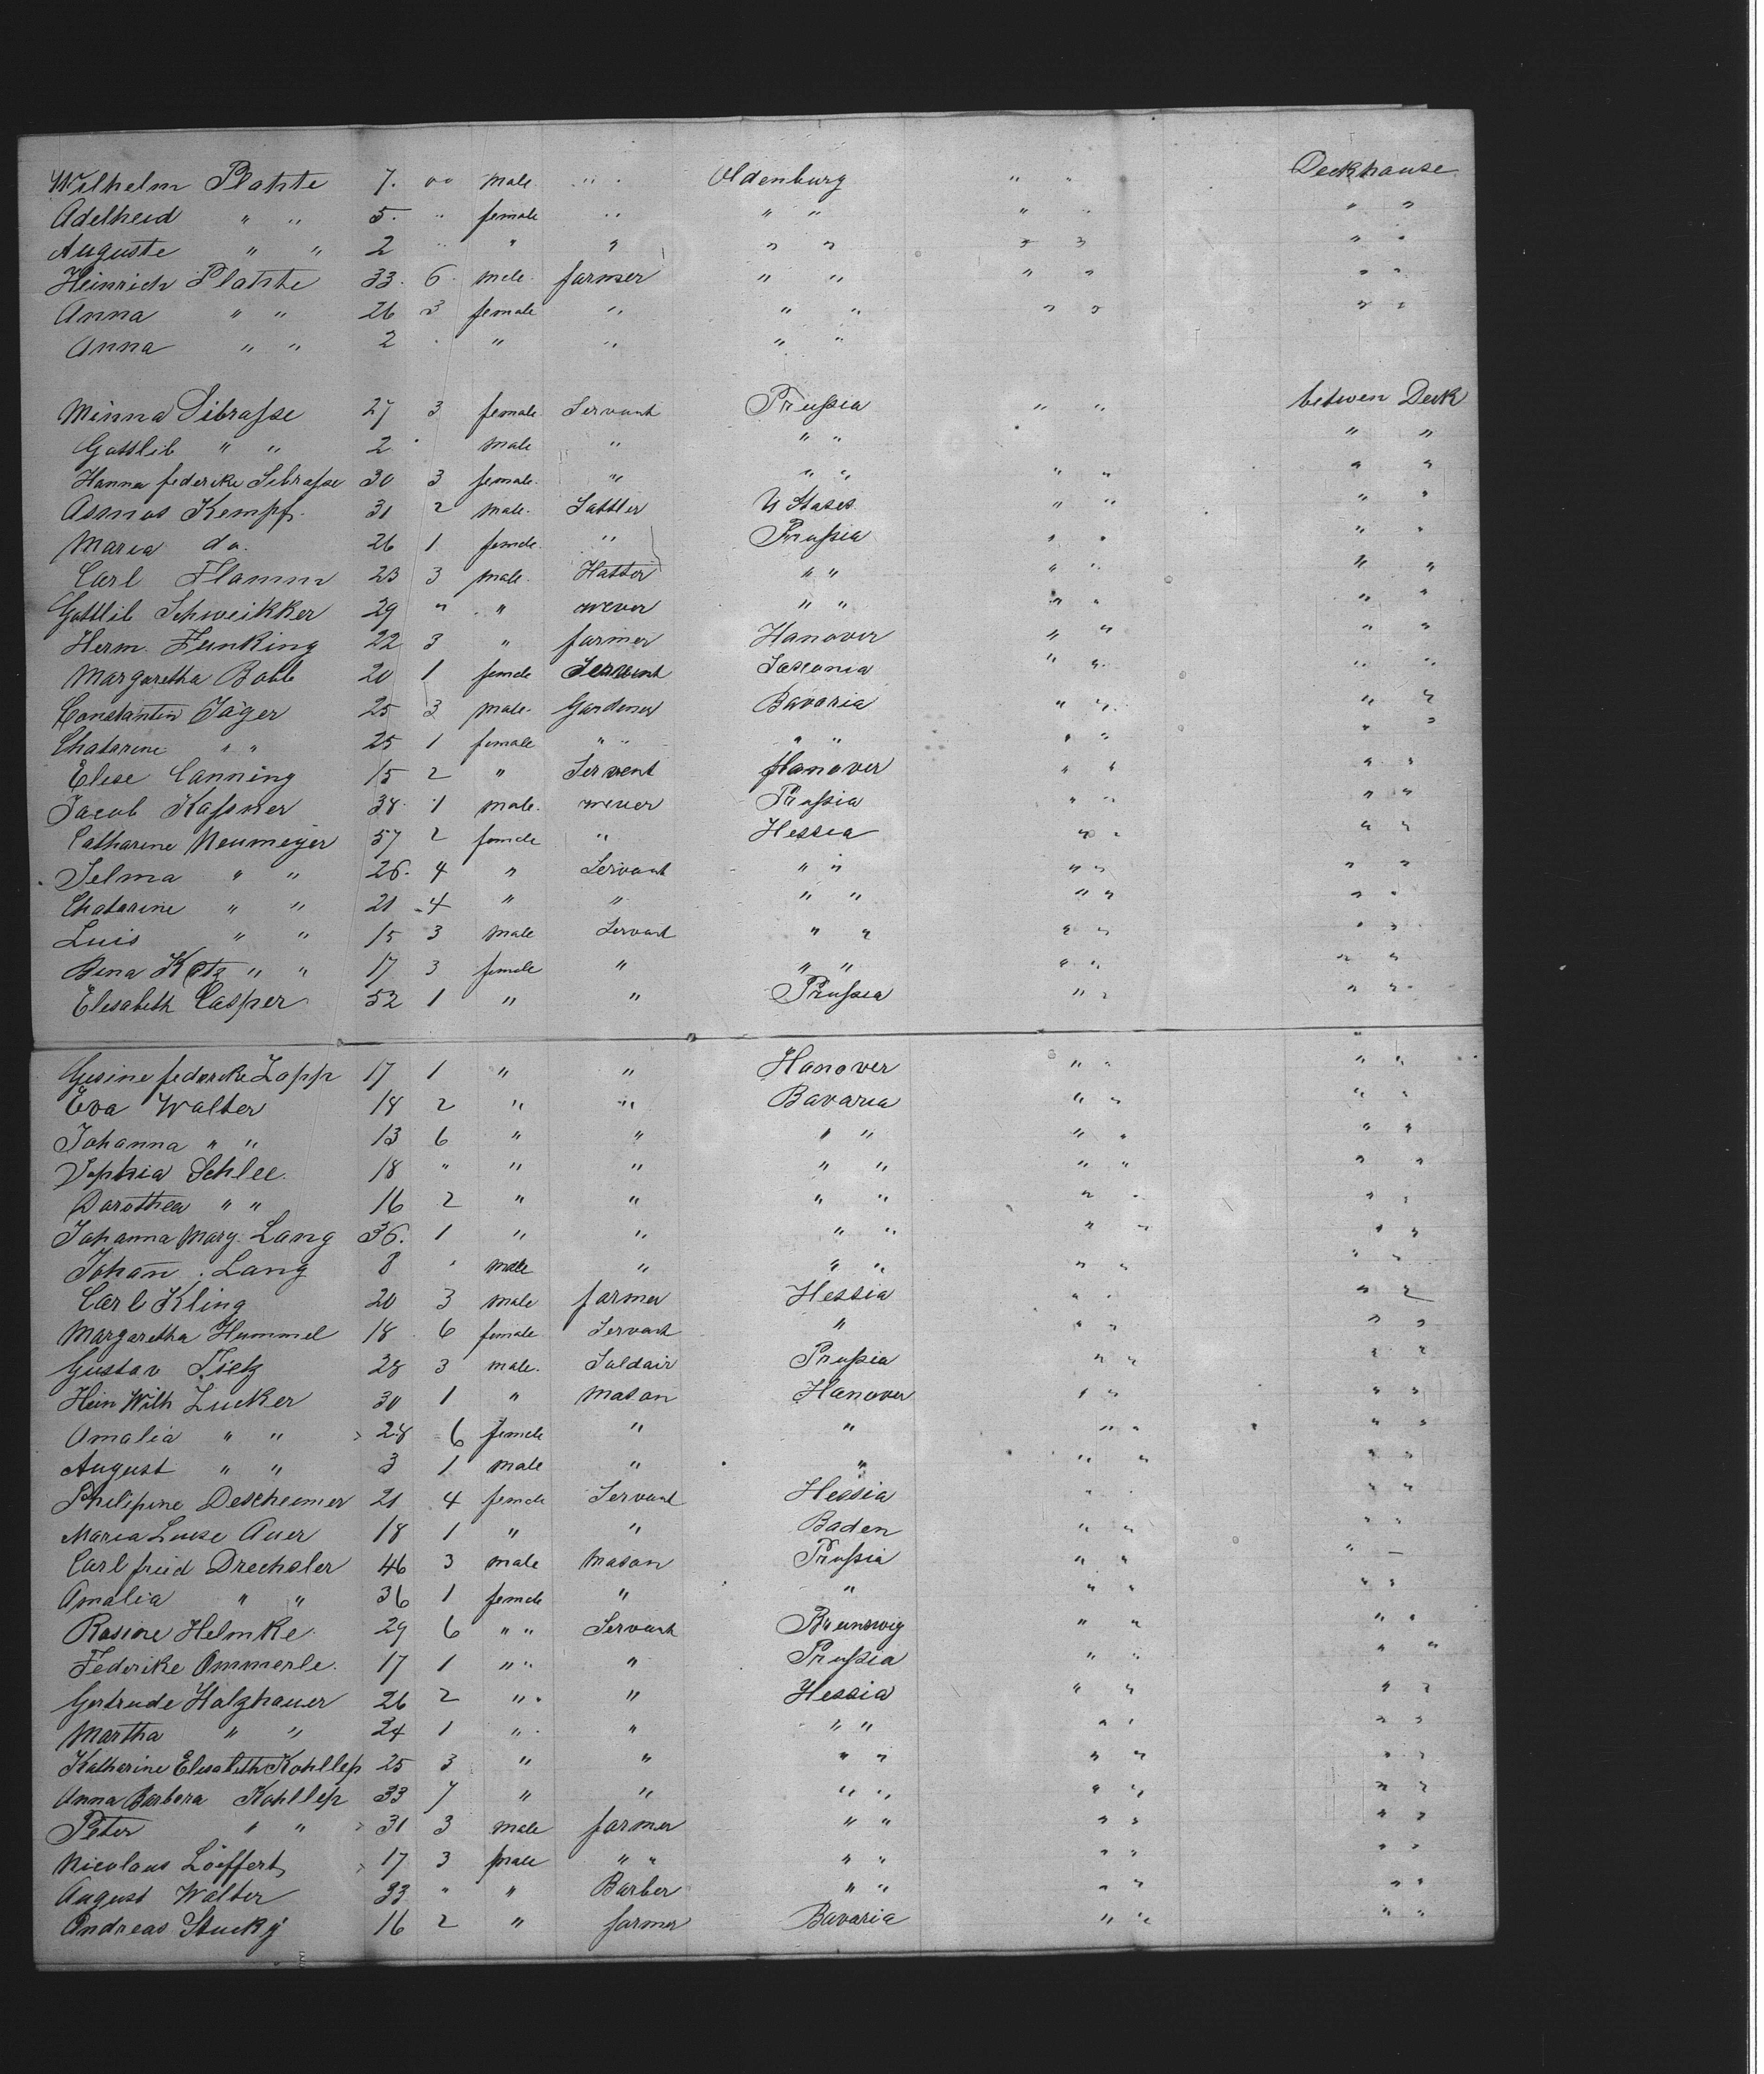 Wilhelm Plahte 7. " male " " Oldenburg " " Deckhause
Adelheid " " 5. " female " " " " " " " "
Auguste " " 2 " " " " " " " " "
Heinrich Plahte 33. 6. male. farmer " " " " " "
Anna " " 26 3 female " " " " " " "
Anna " " 2 " " " " "
Minna Sibrasse 27 3 female Servant Prussia " " betwen Deck
Gottlib " " 2 male " " " " "
Hanna federike Sibrasse 30 3 female " " " " " " "
Asmos Kempf. 31 2 male. Sattler U Stases " " " "
Maria do. 26 1 female " Prussia " " " "
Carl Flamm 23 3 male. Hatter " " " " " "
Gottlib Schweikker 29 " " wever " " " " " "
Herm. Funking 22 3 " farmer Hanover " " " "
Margaretha Bohle 20 1 female Servant Saxonia " " " "
Constantin Jäger 25 3 male. Gardener Bavaria " " " "
Chatarine " " 25 1 female " " " " " " " "
Elise Canning 15 2 " Servent Hanover " " " "
Jacob Kassner 38. 1 male. wever Prussia " " " "
Catharine Neumeyer 57 2 female " Hessia " " " "
Selma " " 26. 4 " Servant " " " " " "
Chatarine " " 21 4 " " " " " " " "
Luis " " 15 3 male Servant " " " " " "
Bina Kotz " " 17 3 female " " " " " " "
Elisabeth Casper 52 1 " " Prussia " " " "
Gesine federike Zopp 17 1 " " Hanover " " " "
Eva Walter 18 2 " " Bavaria " " " "
Johanna " " 13 6 " " " " " " " "
Sophia Schlee. 18 " " " " " " " " "
Dorothea " " 16 2 " " " " " " " "
Johanna Marg. Lang 36. 1 " " " " " " " "
Johan̄ . Lang 8 " male " " " " " " "
Carl Kling 20 3 male farmer Hessia " " " "
Margaretha Hummel 18 6 female Servant " " " " "
Gustav Tietz 28 3 male. Soldair Prussia " " " "
Hein Wilh Lucker 30 1 " Mason Hanover " " " "
Amalia " " 28 6 female " " " " " "
August " " 3 1 male " " " " " "
Philipine Descheimer 21 4 female Servant Hessia " " " "
Maria Luise Auer 18 1 " " Baden " " " "
Carl fried Drechsler 46 3 male Mason Prussia " " "
Amalia " " 36 1 female " " " " " "
Rosine Helmke. 29 6 " " Servant Brunswig " " " "
Federike Ommerle. 17 1 " " " Prussia " " " "
Gertrude Holzhauer 26 2 " " Hessia " " " "
Martha " " 24 1 " " " " " " " "
Katharine Elisabeth Kohllep 25 3 " " " " " " " "
Anna Barbara Kohllep 33 7 " " " " " " " "
Peter " " 31 3 male farmer " " " " " "
Nicolaus Löiffert 17 3 male " " " " " " " "
August Walter 33 " " Barber " " " " " "
Andreas Stucky 16 2 " farmer Bavaria " " " "